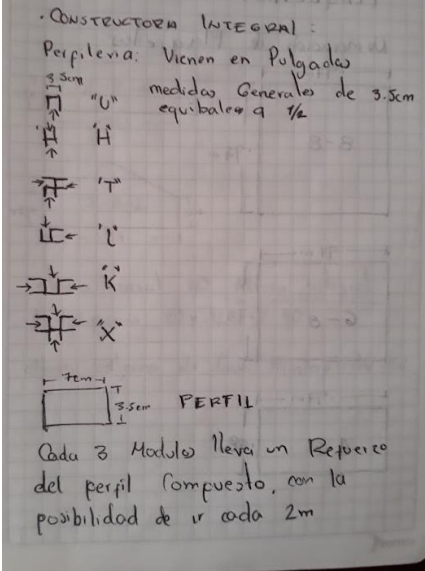 • CONSTRUCTORA INTEGRAL:
Perfileria: Vienen en Pulgadas
medidas Generales de 3.5cm
equibales a 1/2
3.5cm
"U"
"H"
"T"
"L"
"K"
"X"
7cm
3.5cm
PERFIL
Cada 3 Modulos lleva un Refuerzo
del perfil Compuesto, con la
posibilidad de ir cada 2m